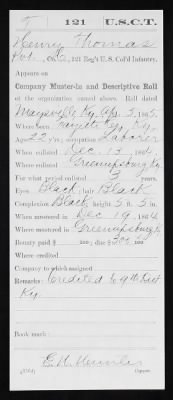 T 121 U.S.C.T.
Henry Thomas
Pvt., Co. C, 121 Reg't U.S. Col'd Infantry.
Appears on
Company Muster-in and Descriptive Roll
of the organization named above. Roll dated
Maysville, Ky. Apr. 3, 1865.
Where born Fayette Co., Ky.
Age 22 y'rs; occupation Laborer
When enlisted Dec. 13, 1864.
Where enlisted Greenupsburg Ky
For what period enlisted 3 years.
Eyes Black; hair Black
Complexion Black; height 5 ft. 5 in.
When mustered in Dec 19, 1864
Where mustered in Greenupsburg Ky
Bounty paid $ 100; due $ 100
Where credited
Company to which assigned
Remarks: Credited to 9th Dist
Ky.
Book mark:
Copyist.